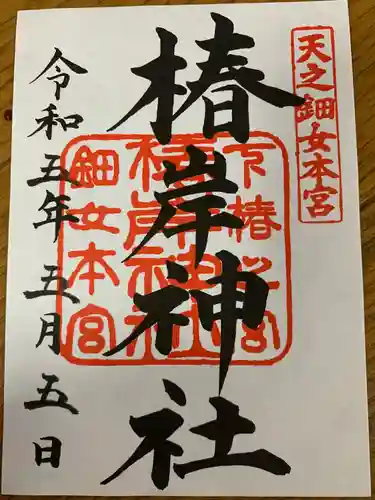 天之鈿女本宮
椿岸神社
鈿女本宮
令和五年五月五日